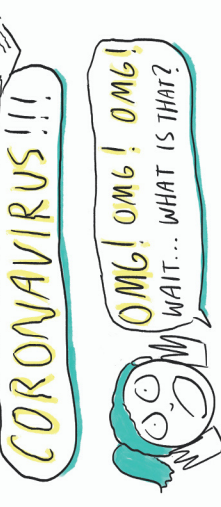 CORONAVIRUS!!!
OMG! OMG! OMG!
WAIT... WHAT IS THAT?